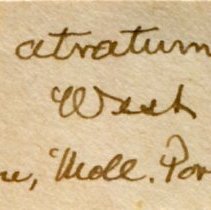 atratum
West
Moll. Por